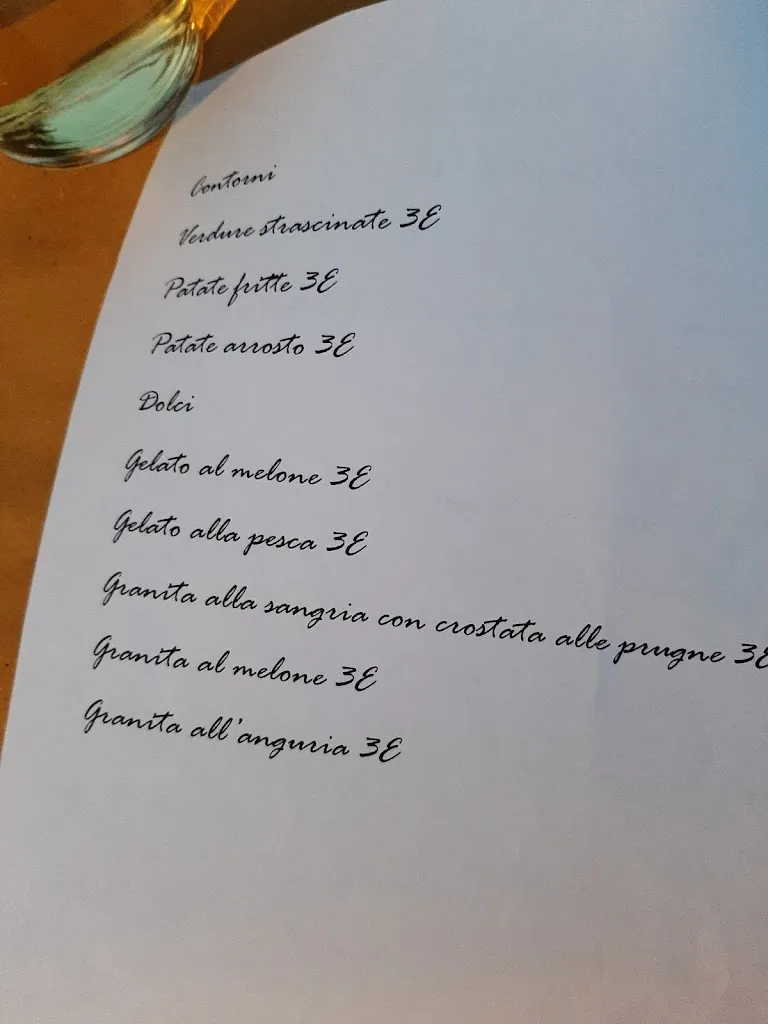 Contorni
Verdure strascinate 3E
Patate fritte 3E
Patate arrosto 3E
Dolci
Gelato al melone 3E
Gelato alla pesca 3E
Granita alla sangria con crostata alle prugne 3E
Granita al melone 3E
Granita all'anguria 3E